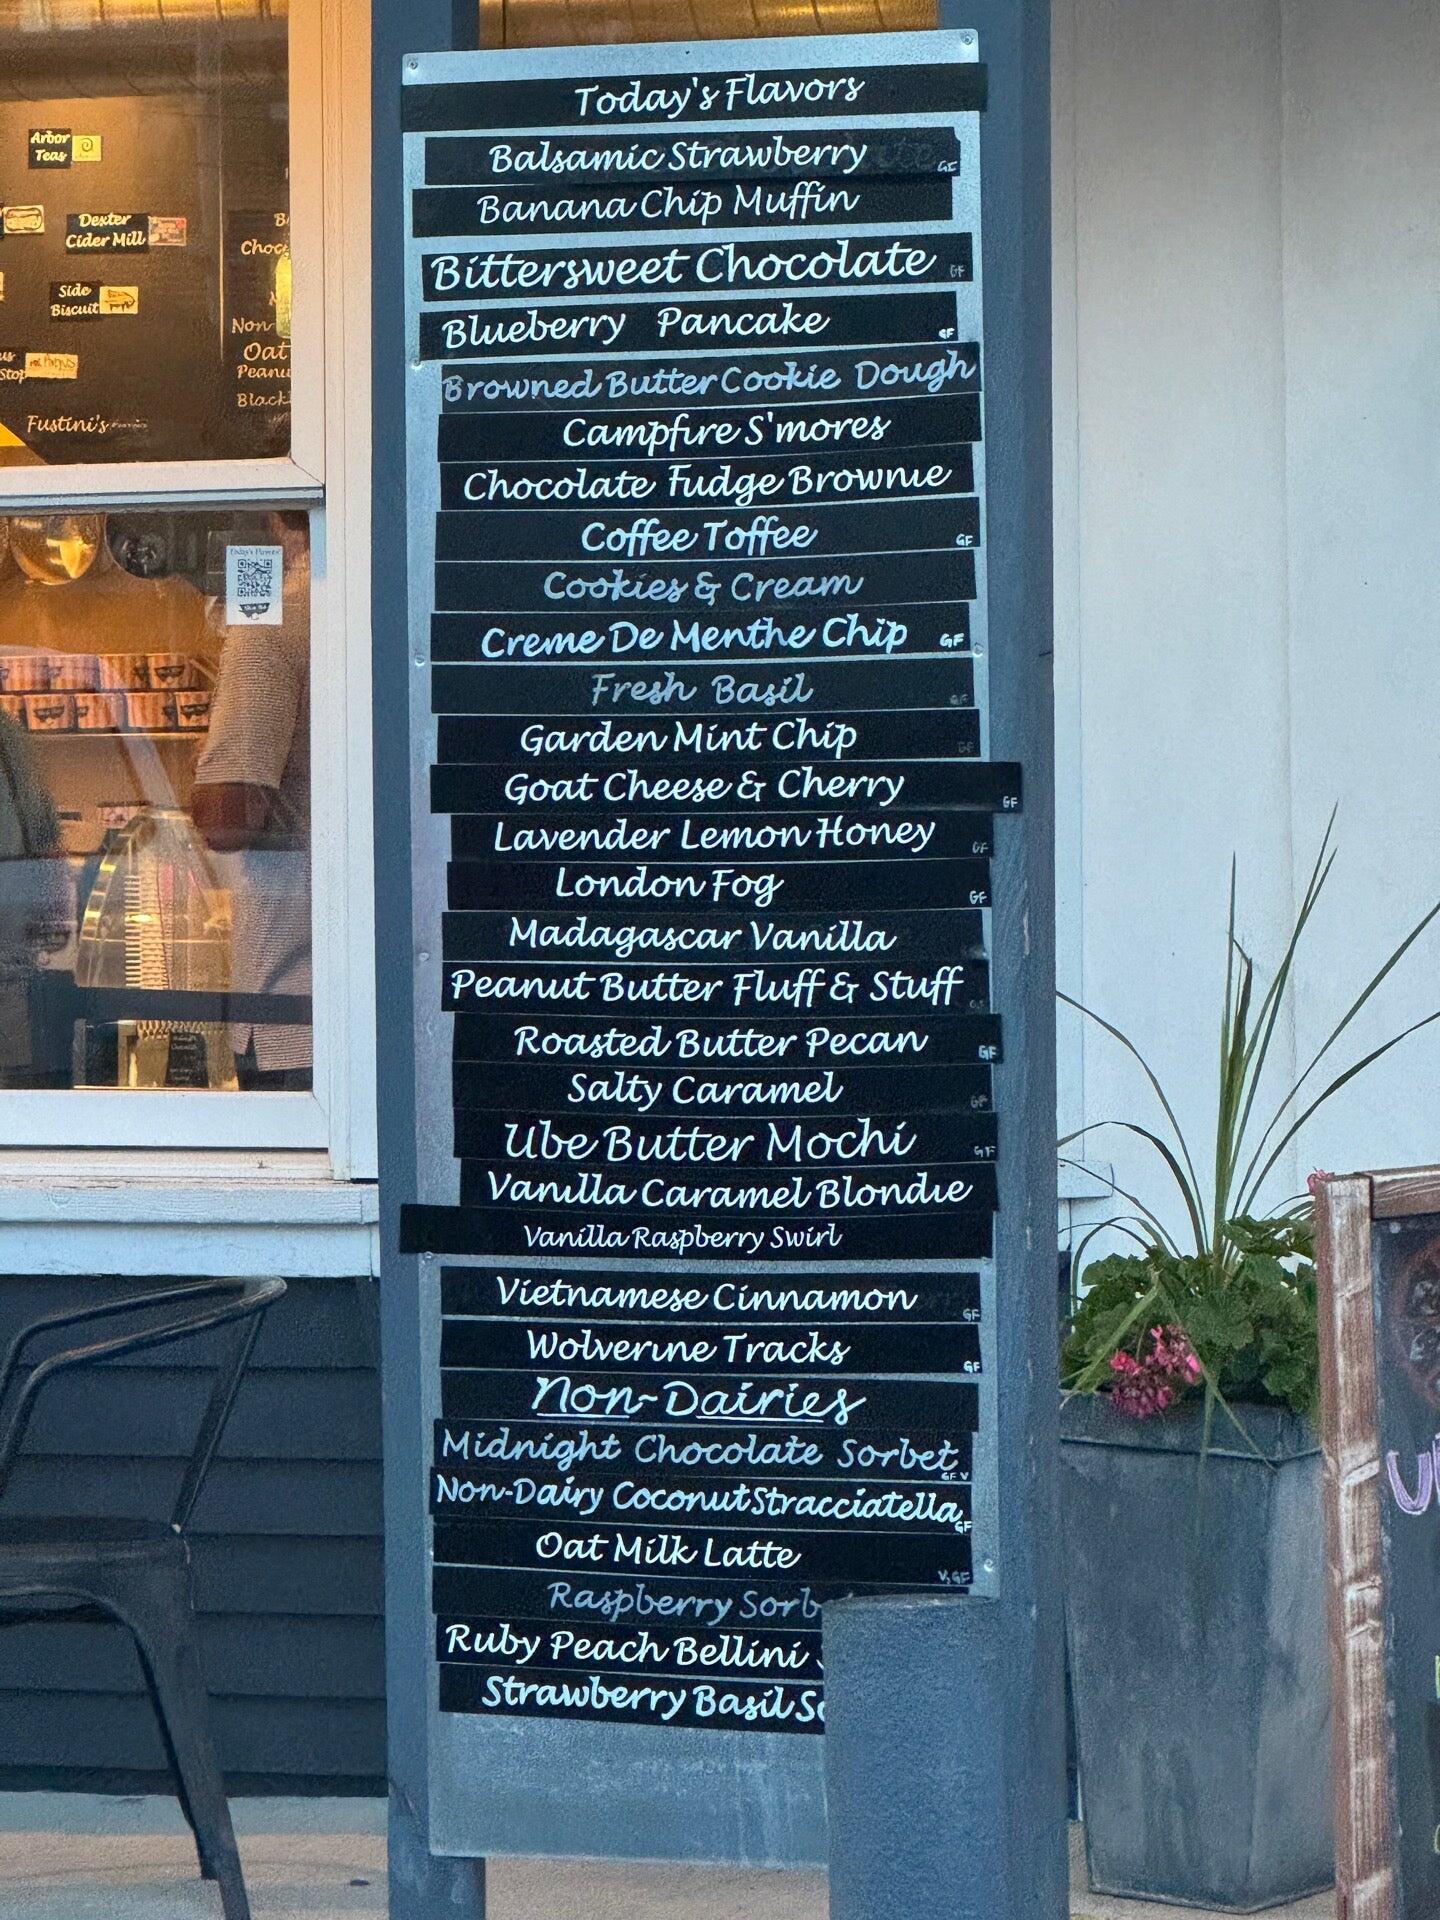 Arbor
Teas
Dexter
Cider Mill
Side
Biscuit
Stop
Fustini's
Non
Oat
Today's Flavors
Balsamic Strawberry GF
Banana Chip Muffin
Bittersweet Chocolate GF
Blueberry Pancake GF
Browned Butter Cookie Dough
Campfire S'mores
Chocolate Fudge Brownie
Coffee Toffee GF
Cookies & Cream
Creme De Menthe Chip GF
Fresh Basil GF
Garden Mint Chip GF
Goat Cheese & Cherry GF
Lavender Lemon Honey GF
London Fog GF
Madagascar Vanilla
Peanut Butter Fluff & Stuff
Roasted Butter Pecan GF
Salty Caramel GF
Ube Butter Mochi GF
Vanilla Caramel Blondie
Vanilla Raspberry Swirl
Vietnamese Cinnamon GF
Wolverine Tracks GF
Non-Dairies
Midnight Chocolate Sorbet GF V
Non-Dairy Coconut Stracciatella GF
Oat Milk Latte V, GF
Raspberry Sorb
Ruby Peach Bellini
Strawberry Basil So